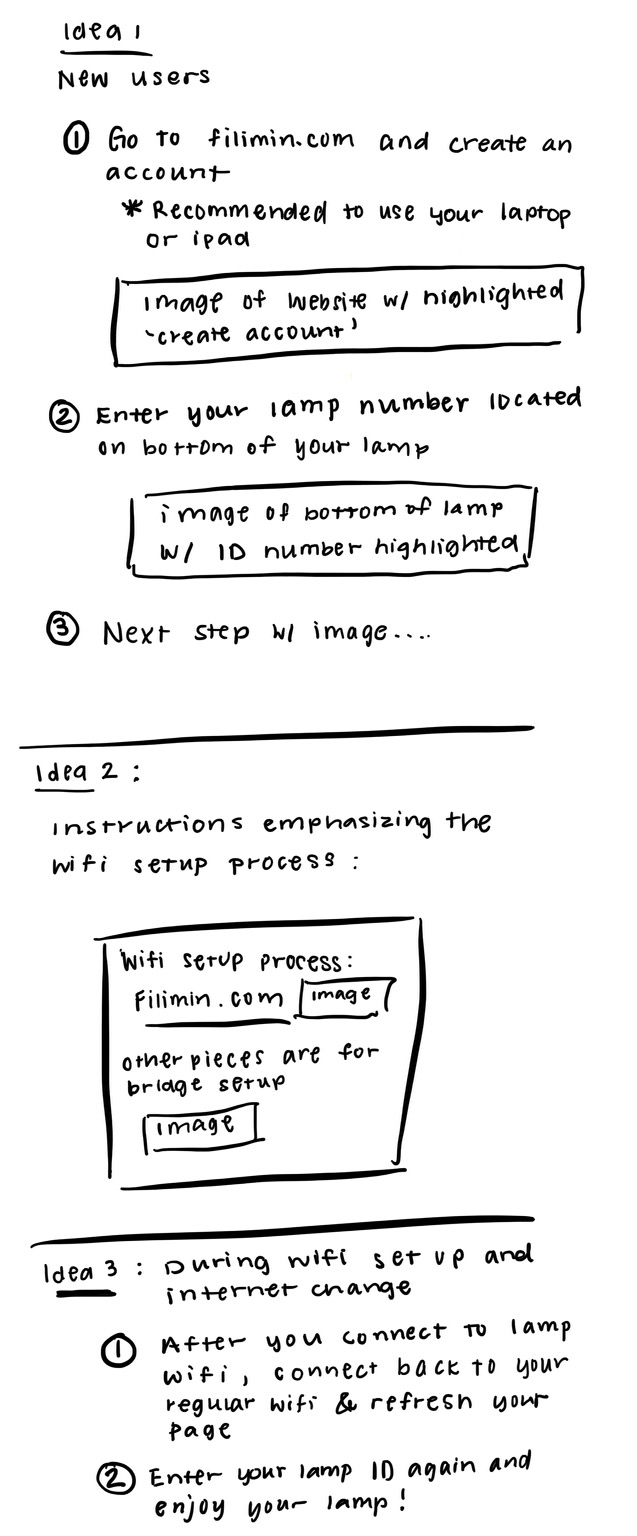 Idea 1
New users
① Go to filimin.com and create an
account
* Recommended to use your laptop
or ipad
image of website w/ highlighted
'create account'
② Enter your lamp number located
on bottom of your lamp
image of bottom of lamp
w/ ID number highlighted
③ Next step w/ image....
Idea 2 :
Instructions emphasizing the
wifi setup process :
Wifi setup process:
Filimin.com image
other pieces are for
bridge setup
image
Idea 3 : During wifi set up and
internet change
① After you connect to lamp
wifi, connect back to your
regular wifi & refresh your
page
② Enter your lamp ID again and
enjoy your lamp!